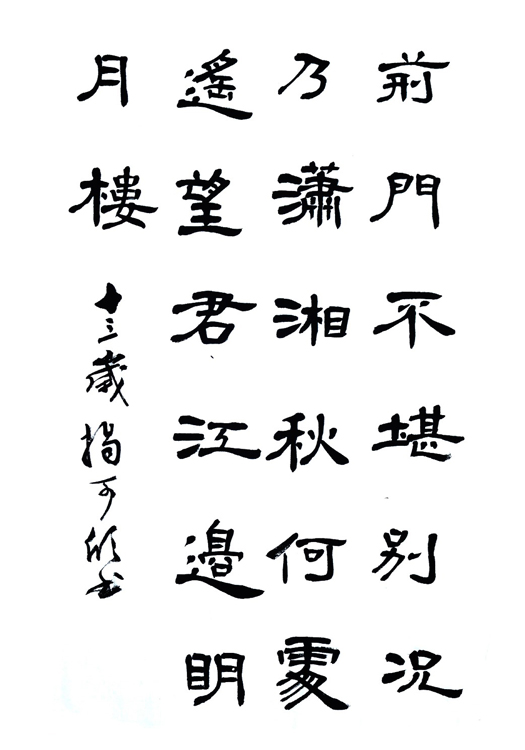 荊門不堪別況
乃瀟湘秋何處
遙望君江邊明
月樓
十三歲可欣书